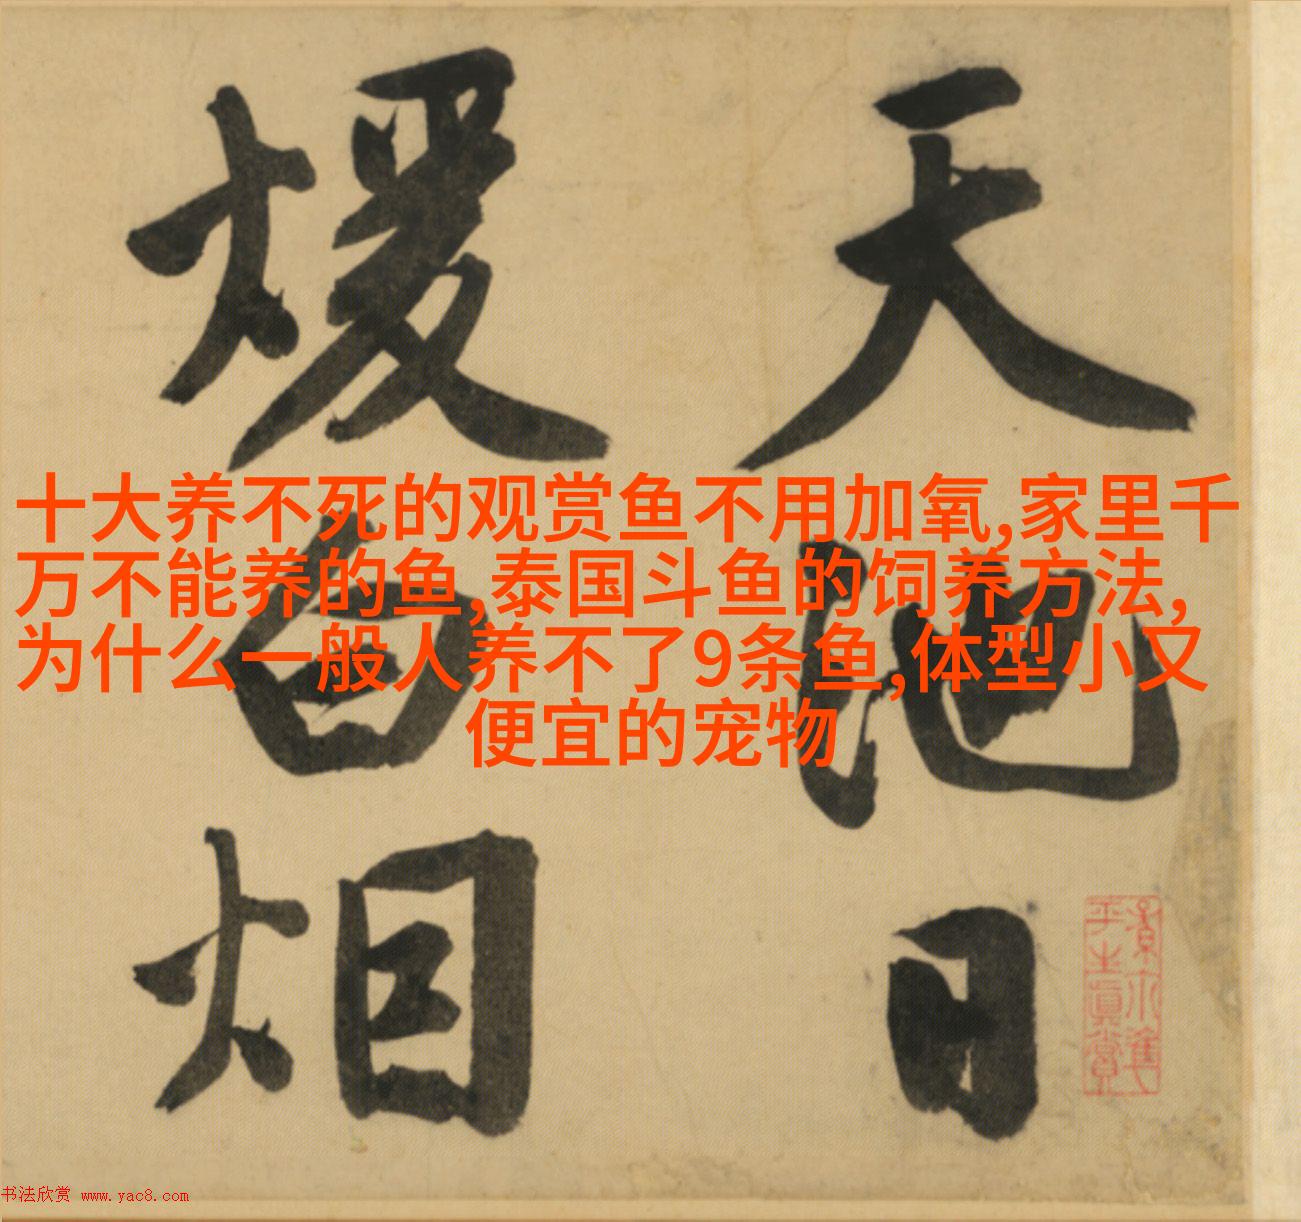 十大养不死的观赏鱼不用加氧,家里千
万不能养的鱼,泰国斗鱼的饲养方法,
为什么一般人养不了9条鱼,体型小又
便宜的宠物
天池日
煖白相
书法欣赏 www.yac8.com